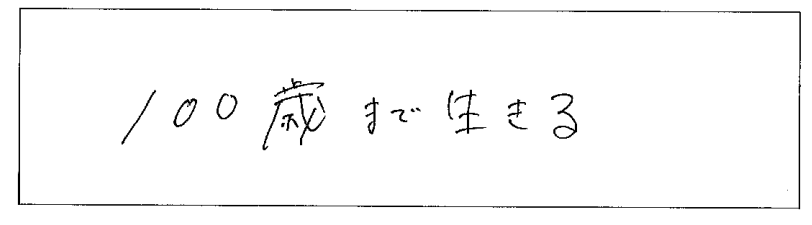 100歳まで生きる